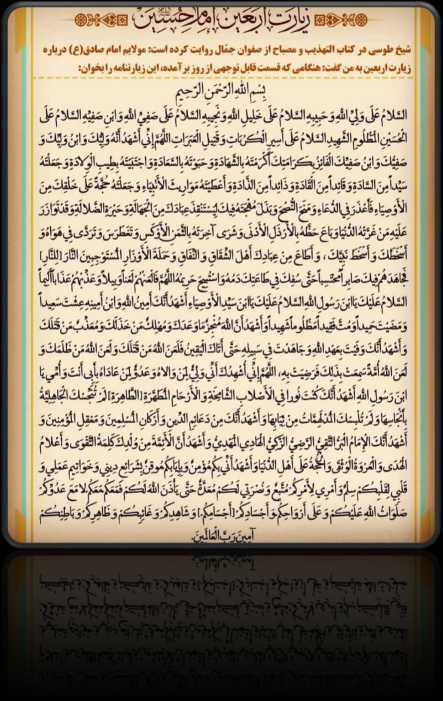 زیارت اربعین امام حسین
شیخ طوسی در کتاب التهذیب و مصباح از صفوان جمّال روایت کرده است: مولایم امام صادق(ع) درباره
زیارت اربعین به من گفت: هنگامی که قسمت قابل توجهی از روز برآمده، این زیارتنامه را بخوان:
بِسْمِ اللهِ الرَّحْمنِ الرَّحیمِ
اَلسَّلامُ عَلی وَلِیِّ اللهِ وَ حَبیبِهِ اَلسَّلامُ عَلی خَلیلِ اللهِ وَ نَجیبِهِ اَلسَّلامُ عَلی صَفِیِّ اللهِ وَ ابْنِ صَفِیِّهِ اَلسَّلامُ عَلَی
الْحُسَیْنِ الْمَظْلُومِ الشَّهیدِ اَلسَّلامُ عَلی اَسیرِ الْکُرُباتِ وَ قَتیلِ الْعَبَراتِ اَللّهُمَّ اِنّی اَشْهَدُ اَنَّهُ وَلِیُّکَ وَابْنُ وَلِیِّکَ وَ
صَفِیُّکَ وَ ابْنُ صَفِیِّکَ الْفائِزُ بِکَرامَتِکَ اَکْرَمْتَهُ بِالشَّهادَةِ وَ حَبَوْتَهُ بِالسَّعادَةِ وَ اجْتَبَیْتَهُ بِطیبِ الْوِلادَةِ وَ جَعَلْتَهُ
سَیِّداً مِنَ السّادَةِ وَ قائِداً مِنَ الْقادَةِ وَ ذائِداً مِنَ الذّادَةِ وَ اَعْطَیْتَهُ مَواریثَ الْاَنْبِیاءِ وَ جَعَلْتَهُ حُجَّةً عَلی خَلْقِکَ مِنَ
الْاَوْصِیاءِ فَاَعْذَرَ فِی الدُّعاءِ وَ مَنَحَ النُّصْحَ وَ بَذَلَ مُهْجَتَهُ فیکَ لِیَسْتَنْقِذَ عِبادَکَ مِنَ الْجَهالَةِ وَ حَیْرَةِ الضَّلالَةِ وَ قَدْ تَوازَرَ
عَلَیْهِ مَنْ غَرَّتْهُ الدُّنْیا وَ باعَ حَظَّهُ بِالْاَرْذَلِ الْاَدْنی وَ شَری آخِرَتَهُ بِالثَّمَنِ الْاَوْکَسِ وَ تَغَطْرَسَ وَ تَرَدّی فی هَواهُ وَ
اَسْخَطَکَ وَ اَسْخَطَ نَبِیَّکَ، وَ اَطاعَ مِنْ عِبادِکَ اَهْلَ الشِّقاقِ وَ النِّفاقِ وَ حَمَلَةَ الْاَوْزارِ الْمُسْتَوْجِبینَ النّارَ [لِلنّارِ]
فَجاهَدَهُمْ فیکَ صابِراً مُحْتَسِباً حَتّی سُفِکَ فی طاعَتِکَ دَمُهُ وَ اسْتُبیحَ حَریمُهُ اَللّهُمَّ فَالْعَنْهُمْ لَعْناً وَبیلاً وَ عَذِّبْهُمْ عَذاباً اَلیماً
اَلسَّلامُ عَلَیْکَ یَا ابْنَ رَسُولِ اللهِ اَلسَّلامُ عَلَیْکَ یَا ابْنَ سَیِّدِ الْاَوْصِیاءِ اَشْهَدُ اَنَّکَ اَمینُ اللهِ وَ ابْنُ اَمینِهِ عِشْتَ سَعیداً
وَ مَضَیْتَ حَمیداً وَ مُتَّ فَقیداً مَظْلُوماً شَهیداً وَ اَشْهَدُ اَنَّ اللهَ مُنْجِزٌ ما وَعَدَکَ وَ مُهْلِکٌ مَنْ خَذَلَکَ وَ مُعَذِّبٌ مَنْ قَتَلَکَ
وَ اَشْهَدُ اَنَّکَ وَفَیْتَ بِعَهْدِ اللهِ وَ جاهَدْتَ فی سَبیلِهِ حَتّی اَتاکَ الْیَقینُ فَلَعَنَ اللهُ مَنْ قَتَلَکَ وَ لَعَنَ اللهُ مَنْ ظَلَمَکَ وَ
لَعَنَ اللهُ اُمَّةً سَمِعَتْ بِذلِکَ فَرَضِیَتْ بِهِ، اَللّهُمَّ اِنّی اُشْهِدُکَ اَنّی وَلِیٌّ لِمَنْ والاهُ وَ عَدُوٌّ لِمَنْ عاداهُ بِاَبی اَنْتَ وَ اُمّی یَا
ابْنَ رَسُولِ اللهِ اَشْهَدُ اَنَّکَ کُنْتَ نُوراً فِی الْاَصْلابِ الشّامِخَةِ وَ الْاَرْحامِ الْمُطَهَّرَةِ [الطّاهِرَةِ] لَمْ تُنَجِّسْکَ الْجاهِلِیَّةُ
بِاَنْجاسِها وَ لَمْ تُلْبِسْکَ الْمُدْلَهِمّاتُ مِنْ ثِیابِها وَ اَشْهَدُ اَنَّکَ مِنْ دَعائِمِ الدّینِ وَ اَرْکانِ الْمُسْلِمینَ وَ مَعْقِلِ الْمُؤْمِنینَ وَ
اَشْهَدُ اَنَّکَ الْاِمامُ الْبَرُّ التَّقِیُّ الرَّضِیُّ الزَّکِیُّ الْهادِی الْمَهْدِیُّ وَ اَشْهَدُ اَنَّ الْاَئِمَّةَ مِنْ وُلْدِکَ کَلِمَةُ التَّقْوی وَ اَعْلامُ
الْهُدی وَ الْعُرْوَةُ الْوُثْقی وَ الْحُجَّةُ عَلی اَهْلِ الدُّنْیا وَ اَشْهَدُ اَنّی بِکُمْ مُؤْمِنٌ وَ بِاِیابِکُمْ مُوقِنٌ بِشَرایِعِ دینی وَ خَواتیمِ عَمَلی وَ
قَلْبی لِقَلْبِکُمْ سِلْمٌ وَ اَمْری لِاَمْرِکُمْ مُتَّبِعٌ وَ نُصْرَتی لَکُمْ مُعَدَّةٌ حَتّی یَأْذَنَ اللهُ لَکُمْ فَمَعَکُمْ مَعَکُمْ لا مَعَ عَدُوِّکُمْ
صَلَواتُ اللهِ عَلَیْکُمْ وَ عَلی اَرْواحِکُمْ وَ اَجْسادِکُمْ [اَجْسامِکُمْ] وَ شاهِدِکُمْ وَ غائِبِکُمْ وَ ظاهِرِکُمْ وَ باطِنِکُمْ
آمینَ رَبَّ الْعالَمینَ.